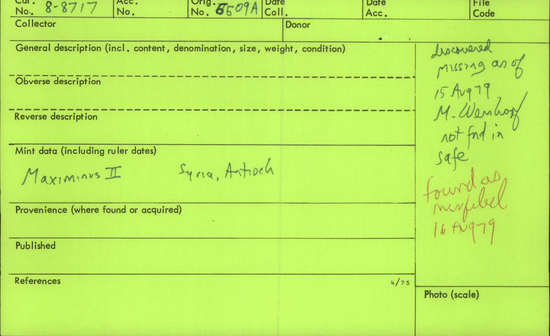 Cat. No. 8-8717 Acc. No. Orig. No. 6509A Date Coll. Date Acc. File Code
Collector Donor
General description (incl. content, denomination, size, weight, condition)
Obverse description
Reverse description
Mint data (including ruler dates)
Maximinus II Syria, Antioch
Provenience (where found or acquired)
Published
References
4/75
discovered
missing as of
15 Aug 79
M.
not fnd in
safe
found as
misfiled
16 Aug 79
Photo (scale)